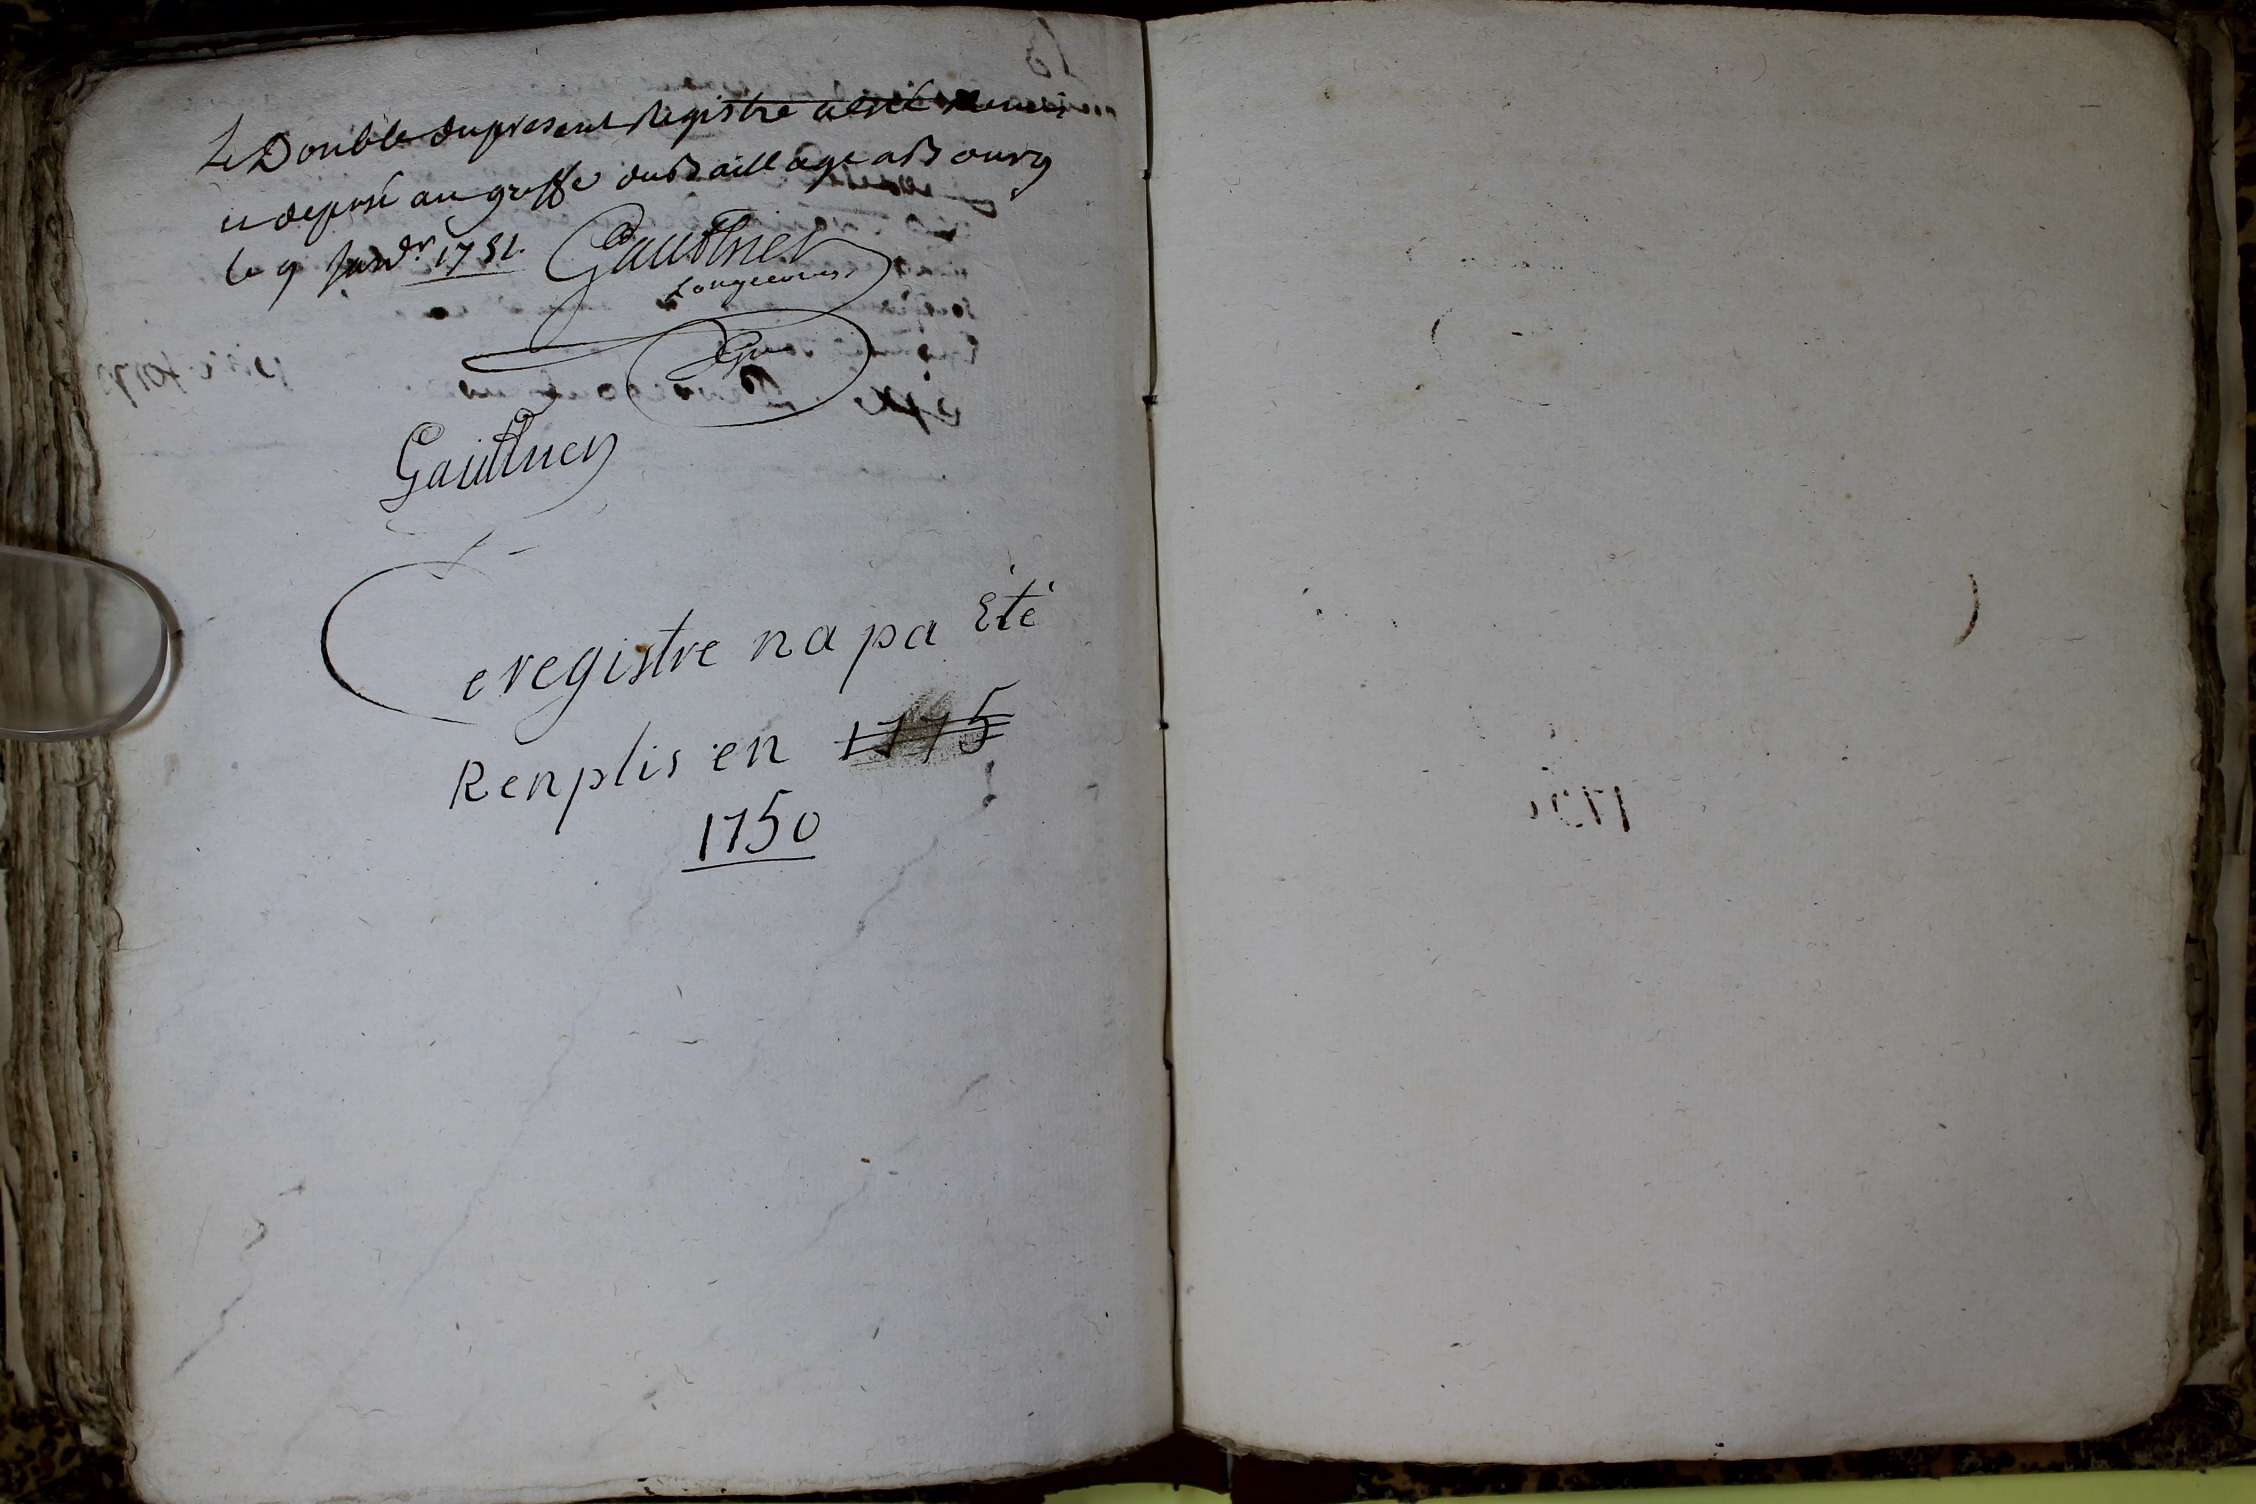 Le Double du present Registre a esté remis
et deposé au greffe du Baillage a Bourg
le 9 Janvr. 1751. Gauthier
Longecour
Gauthier
Ce registre na pa Eté
Renplis en 1775
1750